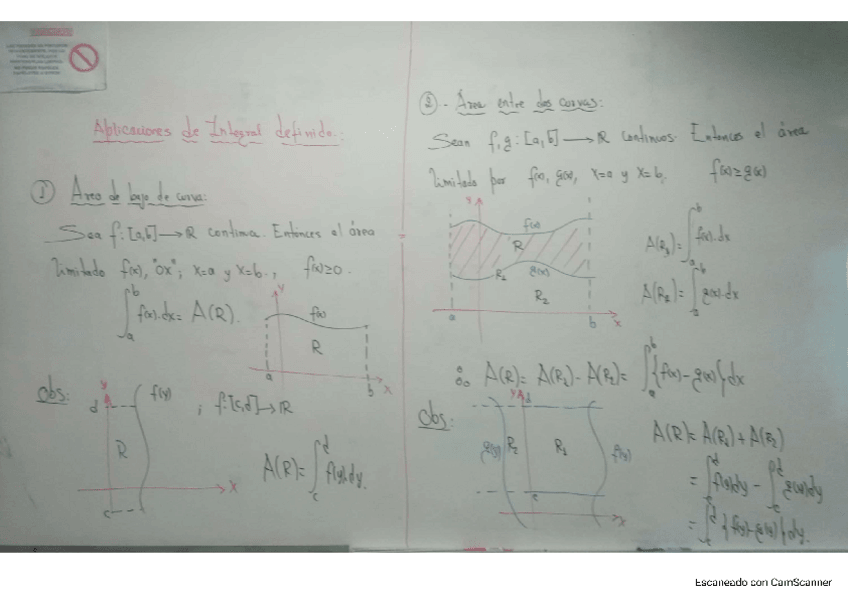 Aplicaciones de Integral definida:
① Area de bajo de curva:
Sea f: [a,b] → R continua. Entonces el área
limitado f(x), "ox"; x=a y x=b., f(x)≥0.
∫_a^b f(x).dx = A(R).
y
f(x)
R
a
b
x
Obs:
y
d
f(y)
; f: [c,d] → R
R
A(R) = ∫_c^d f(y).dy.
x
c
② - Área entre dos curvas:
Sean f, g: [a,b] → R continuos. Entonces el área
limitado por f(x), g(x), x=a y x=b. f(x)≥g(x)
y
f(x)
R
R₁
g(x)
R₂
a
b
x
A(R₁) = ∫_a^b f(x).dx
A(R₂) = ∫_a^b g(x).dx
∴ A(R) = A(R₁) - A(R₂) = ∫_a^b {f(x) - g(x)} dx
Obs:
y
d
g(y)
R₂
R₁
f(y)
c
x
A(R) = A(R₁) + A(R₂)
= ∫_c^d f(y)dy - ∫_c^d g(y)dy
= ∫_c^d {f(y) - g(y)} dy.
Escaneado con CamScanner